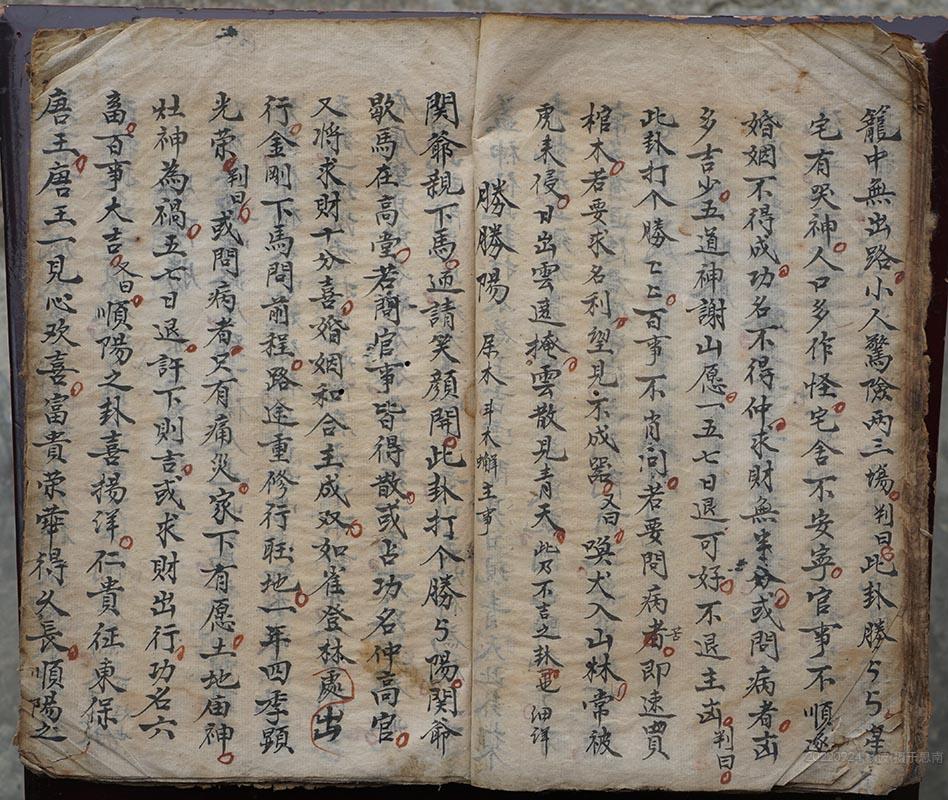 籠中無出路小人驚險两三場判曰此卦勝ㄅㄅ
宅有哭神人口多作怪宅舍不安寧官事不順遂
婚姻不得成功名不得仲求財無半分或問病者凶
多吉少五道神謝山愿一五七日退可好不退主凶判曰
此卦打个勝ㄷㄷ百事不肖问若要問病者苦即速買
棺木若要求名利望見不成器又曰喚犬入山林常被
虎来侵日出雲遮掩雲散見青天此乃不吉之卦也细详
勝勝陽 木斗木獬主事
関爺親下馬通請笑顔開此卦打个勝ㄅ陽関爷
歇馬在高堂若問官事皆得散或占功名仲高官
又将求財十分喜婚姻和合主成双如雀登林處出
行金剛下馬問前程路途重修行旺地一年四季顕
光荣判曰或問病者只有痛災家下有愿土地庙神
灶神為禍五七日退許下則吉或求財出行功名六
畜百事大吉又曰順陽之卦喜揚洋仁貴征東保
唐王唐王一見心欢喜富貴荣華得久長順陽之
20220324 摄于思南